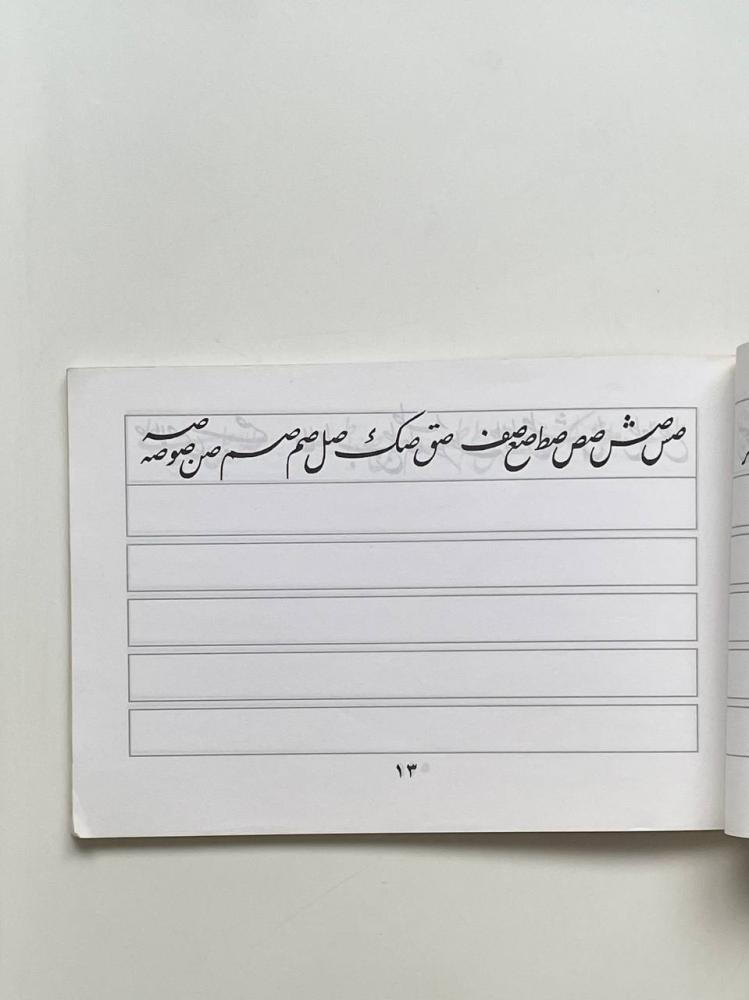 صس صش صص صط صع صف صق صک صل صم صم صن صو صه صه
١٣